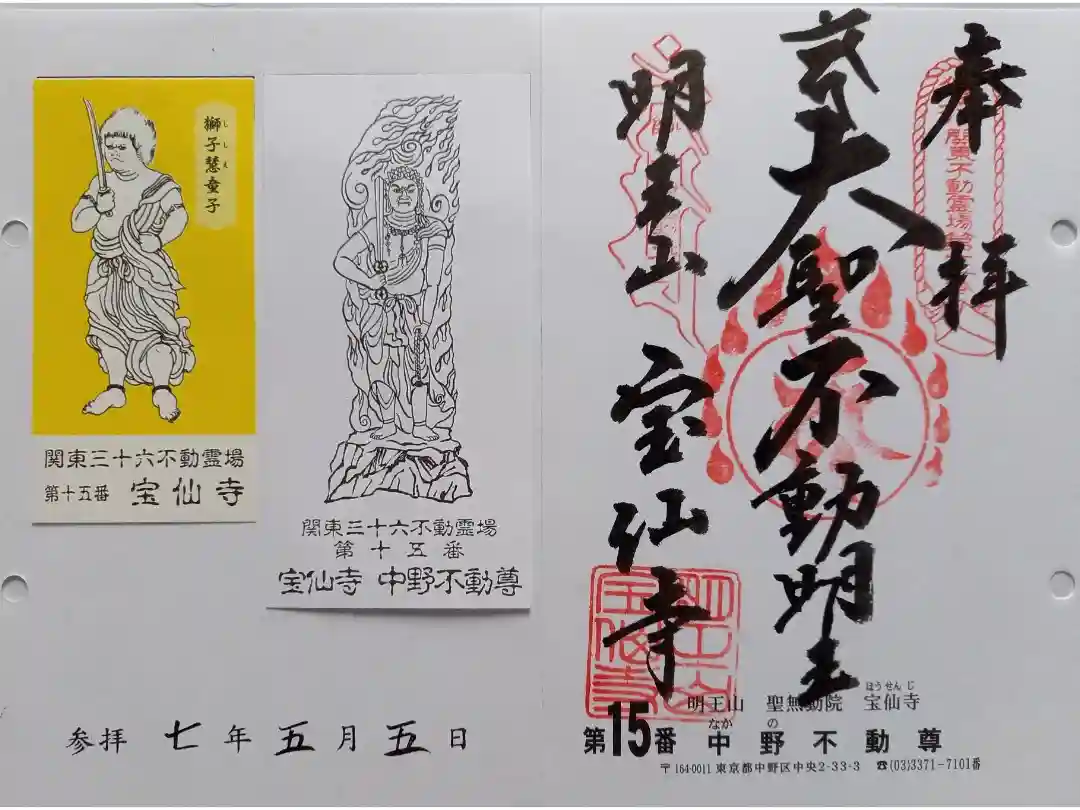 獅子慧童子
しし え
関東三十六不動霊場
第十五番 宝仙寺
関東三十六不動霊場
第十五番
宝仙寺 中野不動尊
参拝 七年五月五日
奉拝
関東不動霊場
大聖不動明王
明王山 宝仙寺
明王山
宝仙寺
ほうせんじ
明王山 聖無動院 宝仙寺
なか の
第15番 中野不動尊
〒164-0011 東京都中野区中央2-33-3 ☎(03)3371-7101番